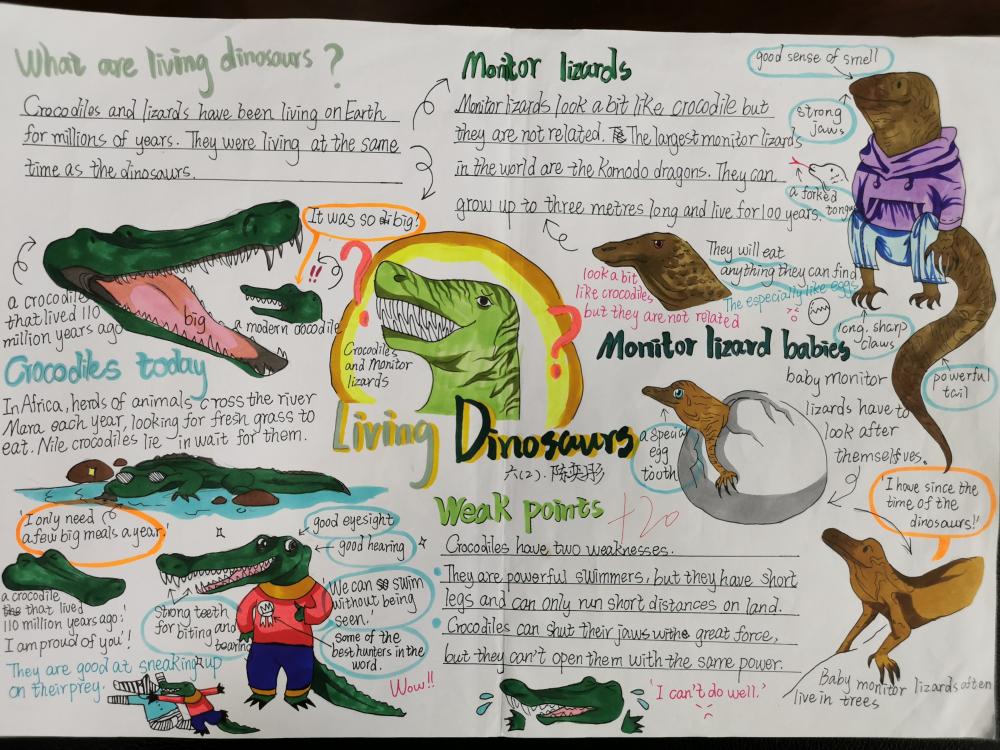 What are living dinosaurs ?
Crocodiles and lizards have been living on Earth
for millions of years. They were living at the same
time as the dinosaurs.
It was so big!
!!
a crocodile
that lived 110
million years ago
big
a modern cocodile
Crocodiles today
In Africa, herds of animals cross the river
Mara each year, looking for fresh grass to
eat. Nile crocodiles lie in wait for them.
'I only need
a few big meals a year.'
a crocodile
that lived
110 million years ago:
I am proud of you'!
They are good at sneaking up
on their prey.
good eyesight
good hearing
Strong teeth
for biting and
tearing
We can swim
without being
seen.
some of the
best hunters in the
word.
Wow!!
?
?
Crocodiles
and Monitor
lizards
Living Dinosaurs
六(2).陈奕彤
Monitor lizards
Monitor lizards look a bit like crocodile but
they are not related. The largest monitor lizards
in the world are the Komodo dragons. They can
grow up to three metres long and live for 100 years.
good sense of smell
strong
jaws
a forked
tongue
look a bit
like crocodiles
but they are not related
They will eat
anything they can find
The especially like eggs
long, sharp
claws
powerful
tail
Monitor lizard babies
baby monitor
lizards have to
look after
themselves.
a special
egg
tooth
'I have since the
time of the
dinosaurs!'
Baby monitor lizards often
live in trees
Weak points
+20
Crocodiles have two weaknesses.
They are powerful swimmers, but they have short
legs and can only run short distances on land.
Crocodiles can shut their jaws with great force,
but they can't open them with the same power.
'I can't do well.'